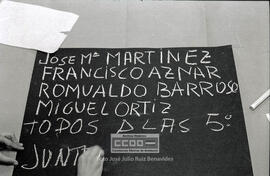 JOSE Mª MARTINEZ
FRANCISCO AZNAR
ROMUALDO BARROSO
MIGUEL ORTIZ
TODOS A LAS 5º
JUNT
CCOO
Foto José Julio Ruiz Benavides